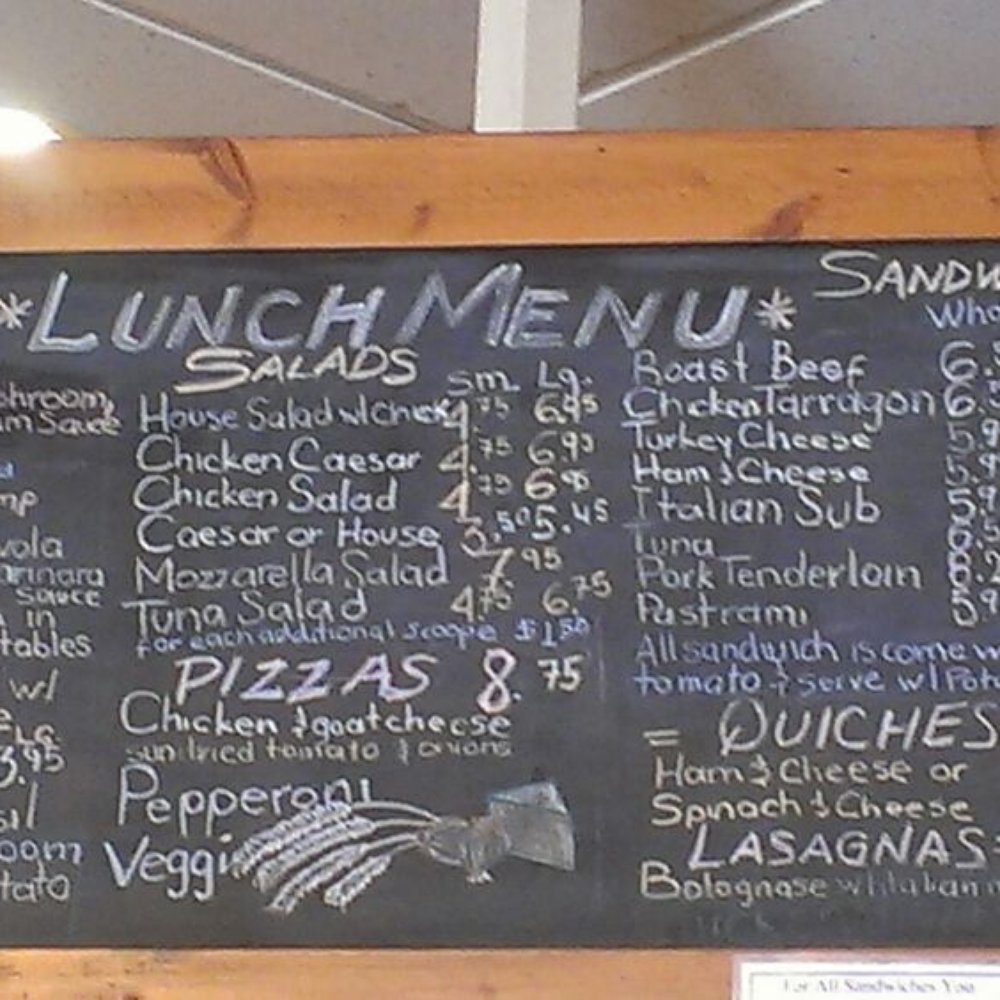 *LUNCH MENU*
SALADS
Sm. Lg.
House Salad w/Chick 4.75 6.95
Chicken Caesar 4.75 6.95
Chicken Salad 4.75 6.95
Caesar or House 3.50 5.45
Mozzarella Salad 7.95
Tuna Salad 4.75 6.75
For each additional scoope $1.50
PIZZAS 8.75
Chicken & goat cheese
sundried tomato & onions
Pepperoni
Veggi
SANDW
Roast Beef 6.
Chicken Tarragon 6.
Turkey Cheese 5.9
Ham & Cheese 5.9
Italian Sub 5.9
Tuna 6.5
Pork Tenderloin 8.2
Pastrami 5.9
All sandwich is come w
tomato & serve w/ Pot
= QUICHES
Ham & Cheese or
Spinach & Cheese
LASAGNAS
Bolognase
shroom
m Sauce
mp
vola
arinara
Sauce
in
tables
w/
LG.
3.95
oom
tato
For All Sandwiches You